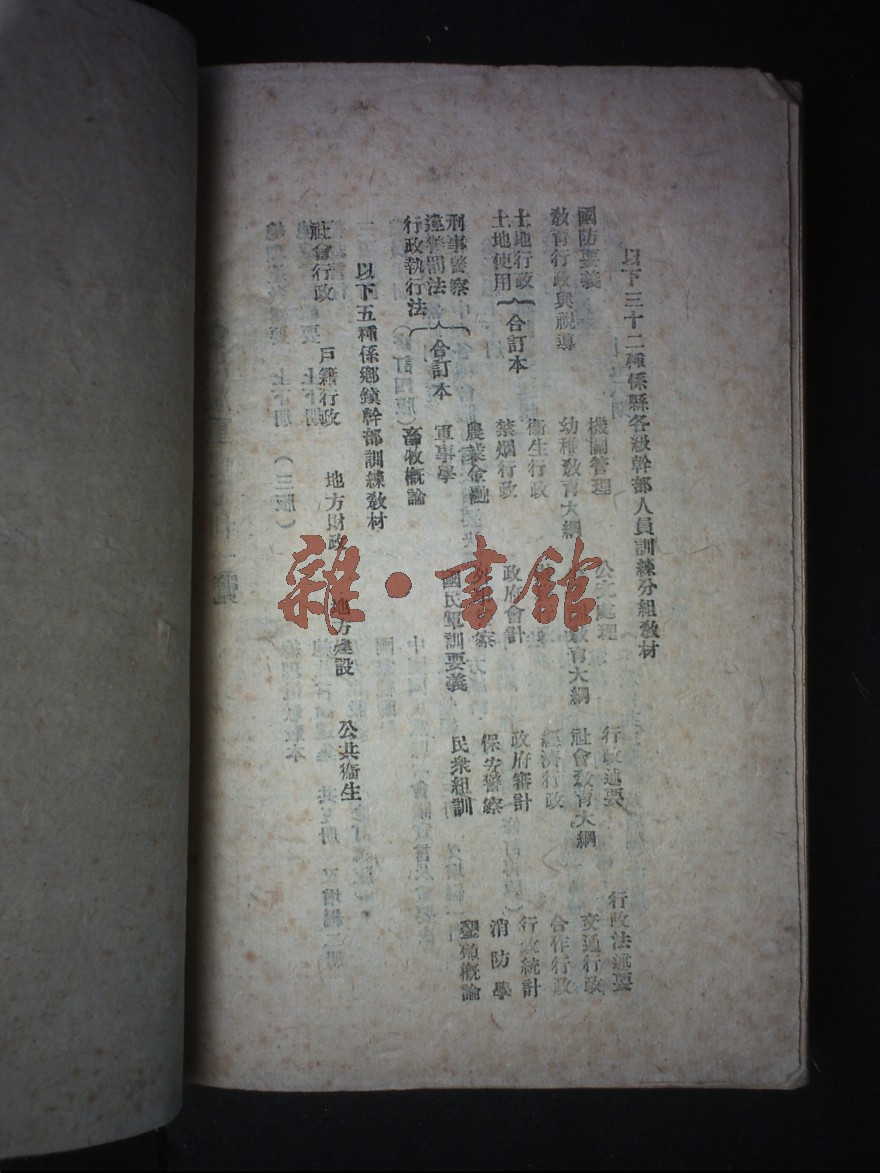 以下三十二種係縣各級幹部人員訓練分組教材
國防要義　機關管理　公文處理　行政述要　行政法述要
教育行政與視導　幼稚教育大綱　教育大綱　社會教育大綱　交通行政
土地行政　衛生行政　經濟行政　合作行政
土地使用　合訂本　禁烟行政　政府會計　政府審計　行政統計
刑事警察　農業金融　警察　保安警察　消防學
違警罰法　合訂本　軍事學　國民軍訓要義　民衆組訓　墾殖概論
行政執行法　畜牧概論
以下五種係鄉鎮幹部訓練教材
社會行政　戶籍行政　地方財政　地方建設　公共衛生
雜·書館